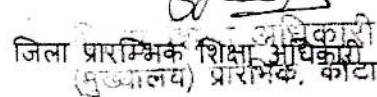 अधिकारी
जिला प्रारम्भिक शिक्षा अधिकारी
(मुख्यालय) प्रारंभिक, कोटा